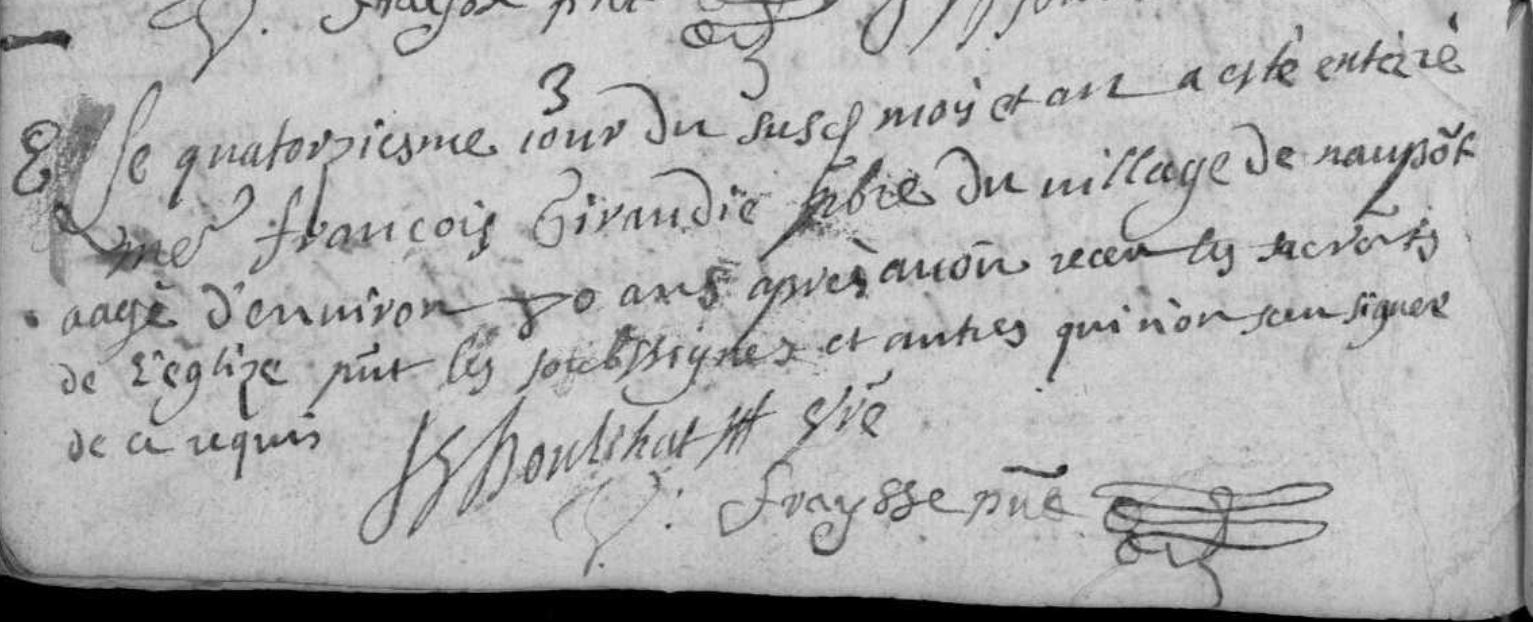 Le quatorziesme iour du susd mois et an a esté enterré
me françois Giraudie pbre du uillage de naupõt
aagé d'enuiron 70 ans apres auoir receu les sacrõts
de l'eglize pñt les soubssignes et autres qui n'on sceu signer
de ce requis
Boulshat
Fraysse pñt